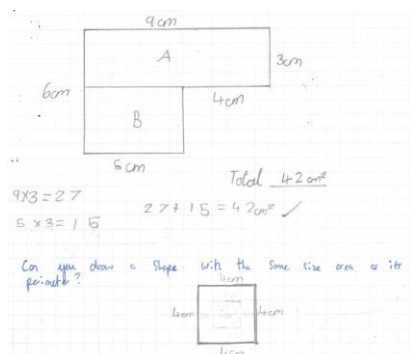 9cm
A
3cm
6cm
4cm
B
5cm
Total 42cm²
9x3=27
27+15=42cm² ✓
5x3=15
Can you draw a shape with the same size area as its
perimeter?
4cm
4cm
4cm
4cm